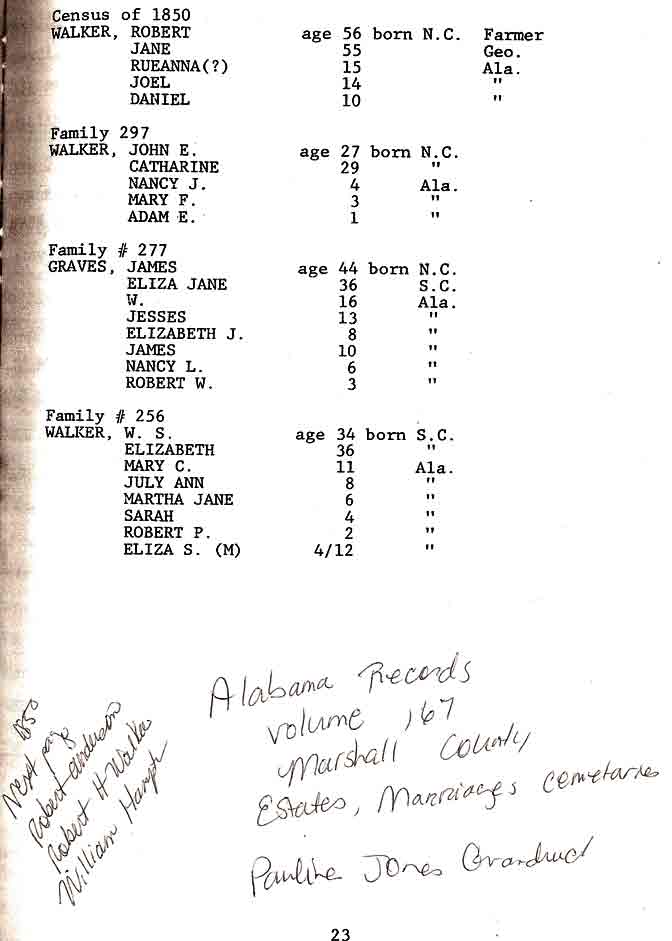 Census of 1850
WALKER, ROBERT age 56 born N.C. Farmer
JANE 55 Geo.
RUEANNA(?) 15 Ala.
JOEL 14 "
DANIEL 10 "
Family 297
WALKER, JOHN E. age 27 born N.C.
CATHARINE 29 "
NANCY J. 4 Ala.
MARY F. 3 "
ADAM E. 1 "
Family # 277
GRAVES, JAMES age 44 born N.C.
ELIZA JANE 36 S.C.
W. 16 Ala.
JESSES 13 "
ELIZABETH J. 8 "
JAMES 10 "
NANCY L. 6 "
ROBERT W. 3 "
Family # 256
WALKER, W. S. age 34 born S.C.
ELIZABETH 36 "
MARY C. 11 Ala.
JULY ANN 8 "
MARTHA JANE 6 "
SARAH 4 "
ROBERT P. 2 "
ELIZA S. (M) 4/12 "
1850
Next pag
Robert anderson
Robert H Walker
William
Alabama Records
volume 167
Marshall County
Estates, Marriages cemetaries
Pauline Jones
23